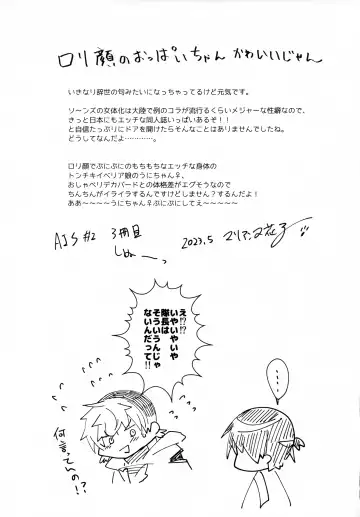 ロリ顔のおっぱいちゃん かわいいじゃん
いきなり辞世の句みたいになっちゃってるけど元気です。
ソーンズの女体化は大陸で例のコラが流行るくらいメジャーな性癖なので、
きっと日本にもエッチな同人誌いっぱいあるぞ！！
と自信たっぷりにドアを開けたらそんなことはありませんでしたね。
どうしてなんだよ…………。
ロリ顔でぷにぷにのもちもちなエッチな身体の
トンチキイベリア娘のうにちゃん♀、
おしゃべりデカバードとの体格差がエグそうなので
ちんちんがイライラするんですけどしません？するんだよ！
ああ～～～～うにちゃん♀ぷにぷにしてえ～～～～～
AJS #2 3冊目
2023.5
え!?!?
いやいやいや
隊長は
そういうんじゃ
ないんだって!!
……。
何言ってんの!?